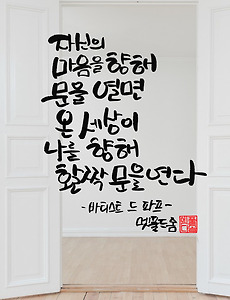 자신의
마음을 향해
문을 열면
온 세상이
나를 향해
활짝 문을 연다
- 바티스트 드 파프 -